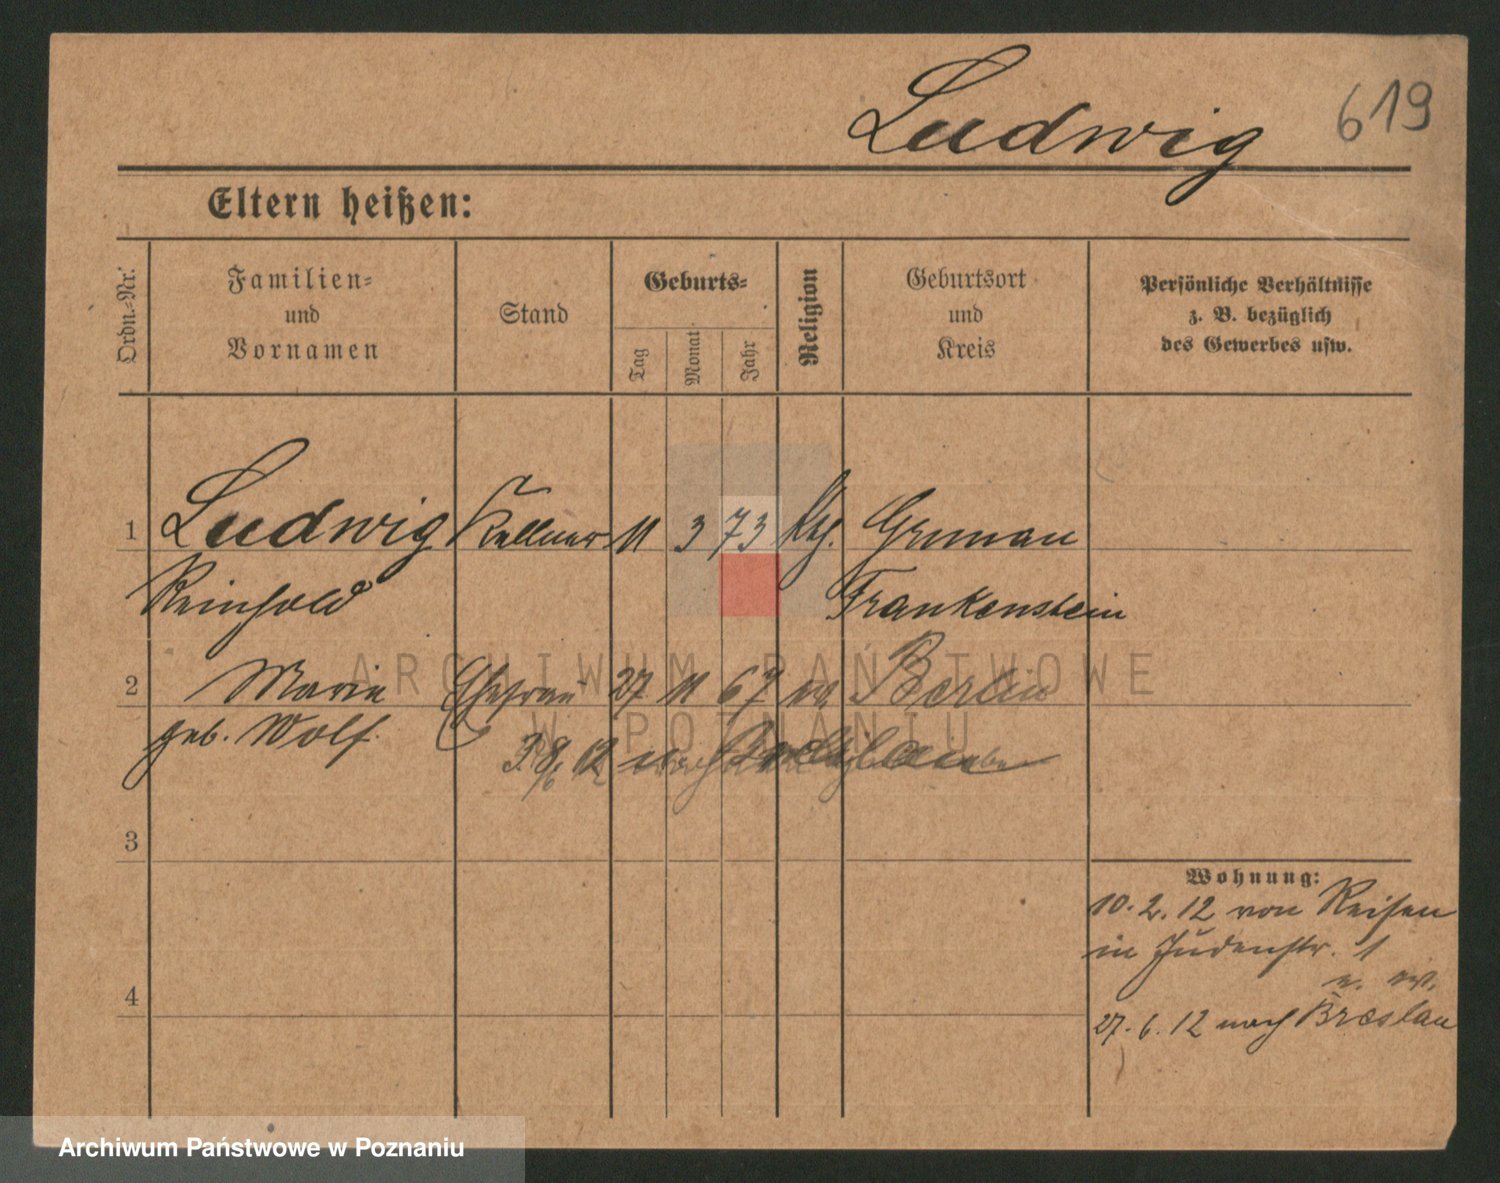 Ludwig 619
Eltern heißen:
Ordn.-Nr.
Familien-
und
Vornamen
Stand
Geburts-
Tag
Monat
Jahr
Religion
Geburtsort
und
Kreis
Persönliche Verhältnisse
z. B. bezüglich
des Gewerbes usw.
1 Ludwig Kellner 11 3 73 Grunau
Reinhold Frankenstein
ARCHIWUM PAŃSTWOWE
2 Marie Ehefrau 27 11 67 Berlin
W POZNANIU
geb. Wolf
12
3
Wohnung:
10. 2. 12 von Reisen
in Judenstr. 1
4
27. 6. 12 nach Breslau
Archiwum Państwowe w Poznaniu